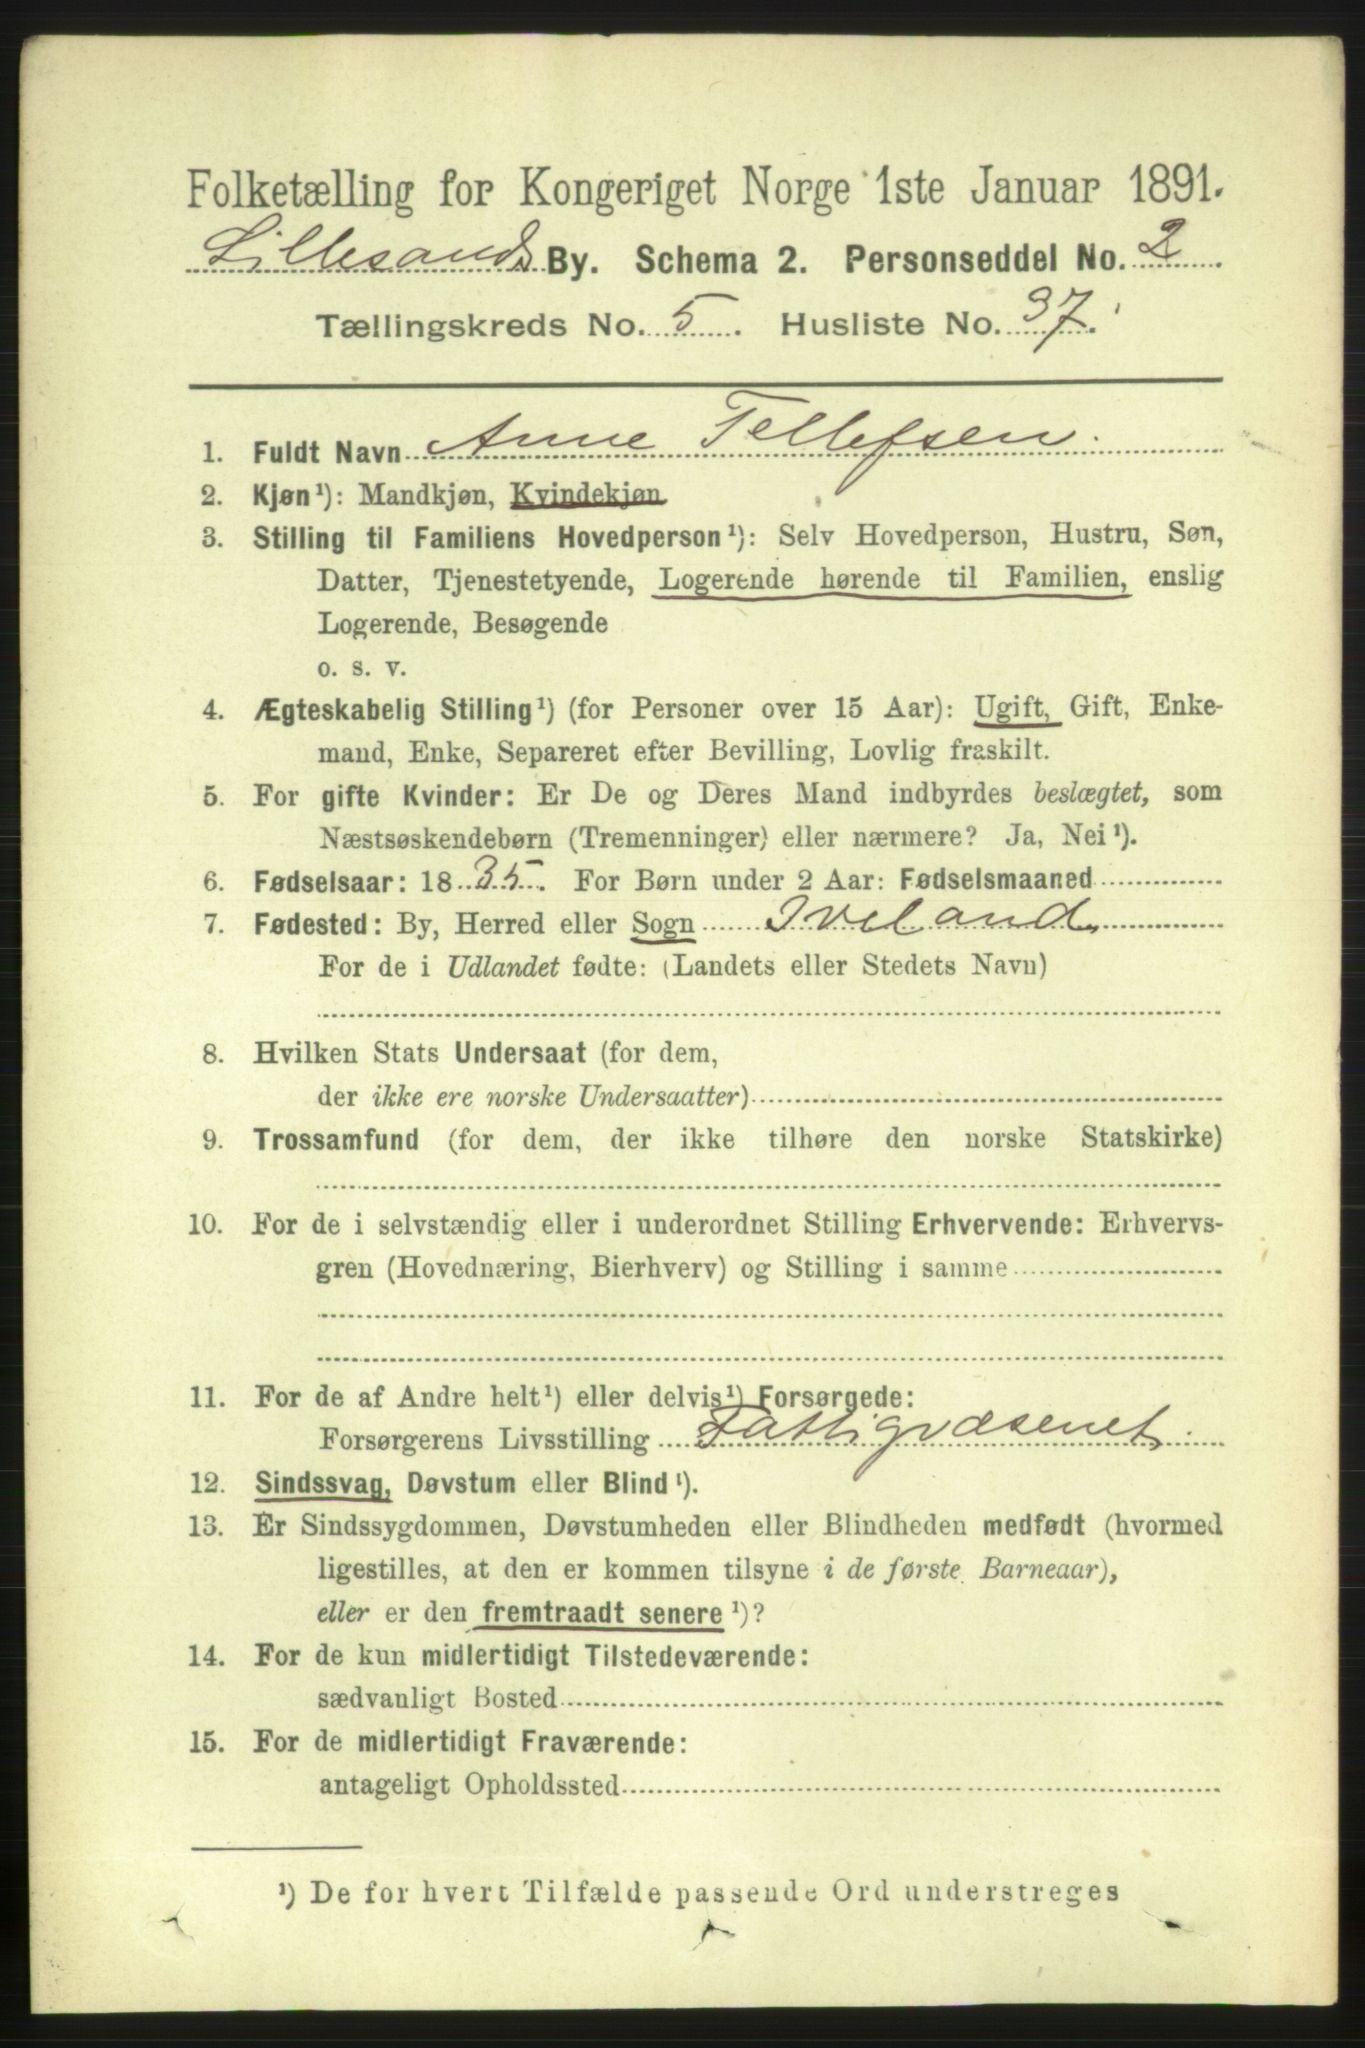 Folketælling for Kongeriget Norge 1ste Januar 1891.
Lillesands By. Schema 2. Personseddel No. 2.
Tællingskreds No. 5. Husliste No. 37.
1. Fuldt Navn Anne Tellefsen.
2. Kjøn¹): Mandkjøn, Kvindekjøn
3. Stilling til Familiens Hovedperson¹): Selv Hovedperson, Hustru, Søn,
Datter, Tjenestetyende, Logerende hørende til Familien, enslig
Logerende, Besøgende
o. s. v.
4. Ægteskabelig Stilling¹) (for Personer over 15 Aar): Ugift, Gift, Enke-
mand, Enke, Separeret efter Bevilling, Lovlig fraskilt.
5. For gifte Kvinder: Er De og Deres Mand indbyrdes beslægtet, som
Næstsøskendebørn (Tremenninger) eller nærmere? Ja, Nei¹).
6. Fødselsaar: 1835. For Børn under 2 Aar: Fødselsmaaned
7. Fødested: By, Herred eller Sogn Iveland.
For de i Udlandet fødte: (Landets eller Stedets Navn)
8. Hvilken Stats Undersaat (for dem,
der ikke ere norske Undersaatter)
9. Trossamfund (for dem, der ikke tilhøre den norske Statskirke)
10. For de i selvstændig eller i underordnet Stilling Erhvervende: Erhvervs-
gren (Hovednæring, Bierhverv) og Stilling i samme
11. For de af Andre helt¹) eller delvis¹) Forsørgede:
Forsørgerens Livsstilling Fattigvæsenet
12. Sindssvag, Døvstum eller Blind¹).
13. Er Sindssygdommen, Døvstumheden eller Blindheden medfødt (hvormed
ligestilles, at den er kommen tilsyne i de første Barneaar),
eller er den fremtraadt senere¹)?
14. For de kun midlertidigt Tilstedeværende:
sædvanligt Bosted
15. For de midlertidigt Fraværende:
antageligt Opholdssted
¹) De for hvert Tilfælde passende Ord understreges